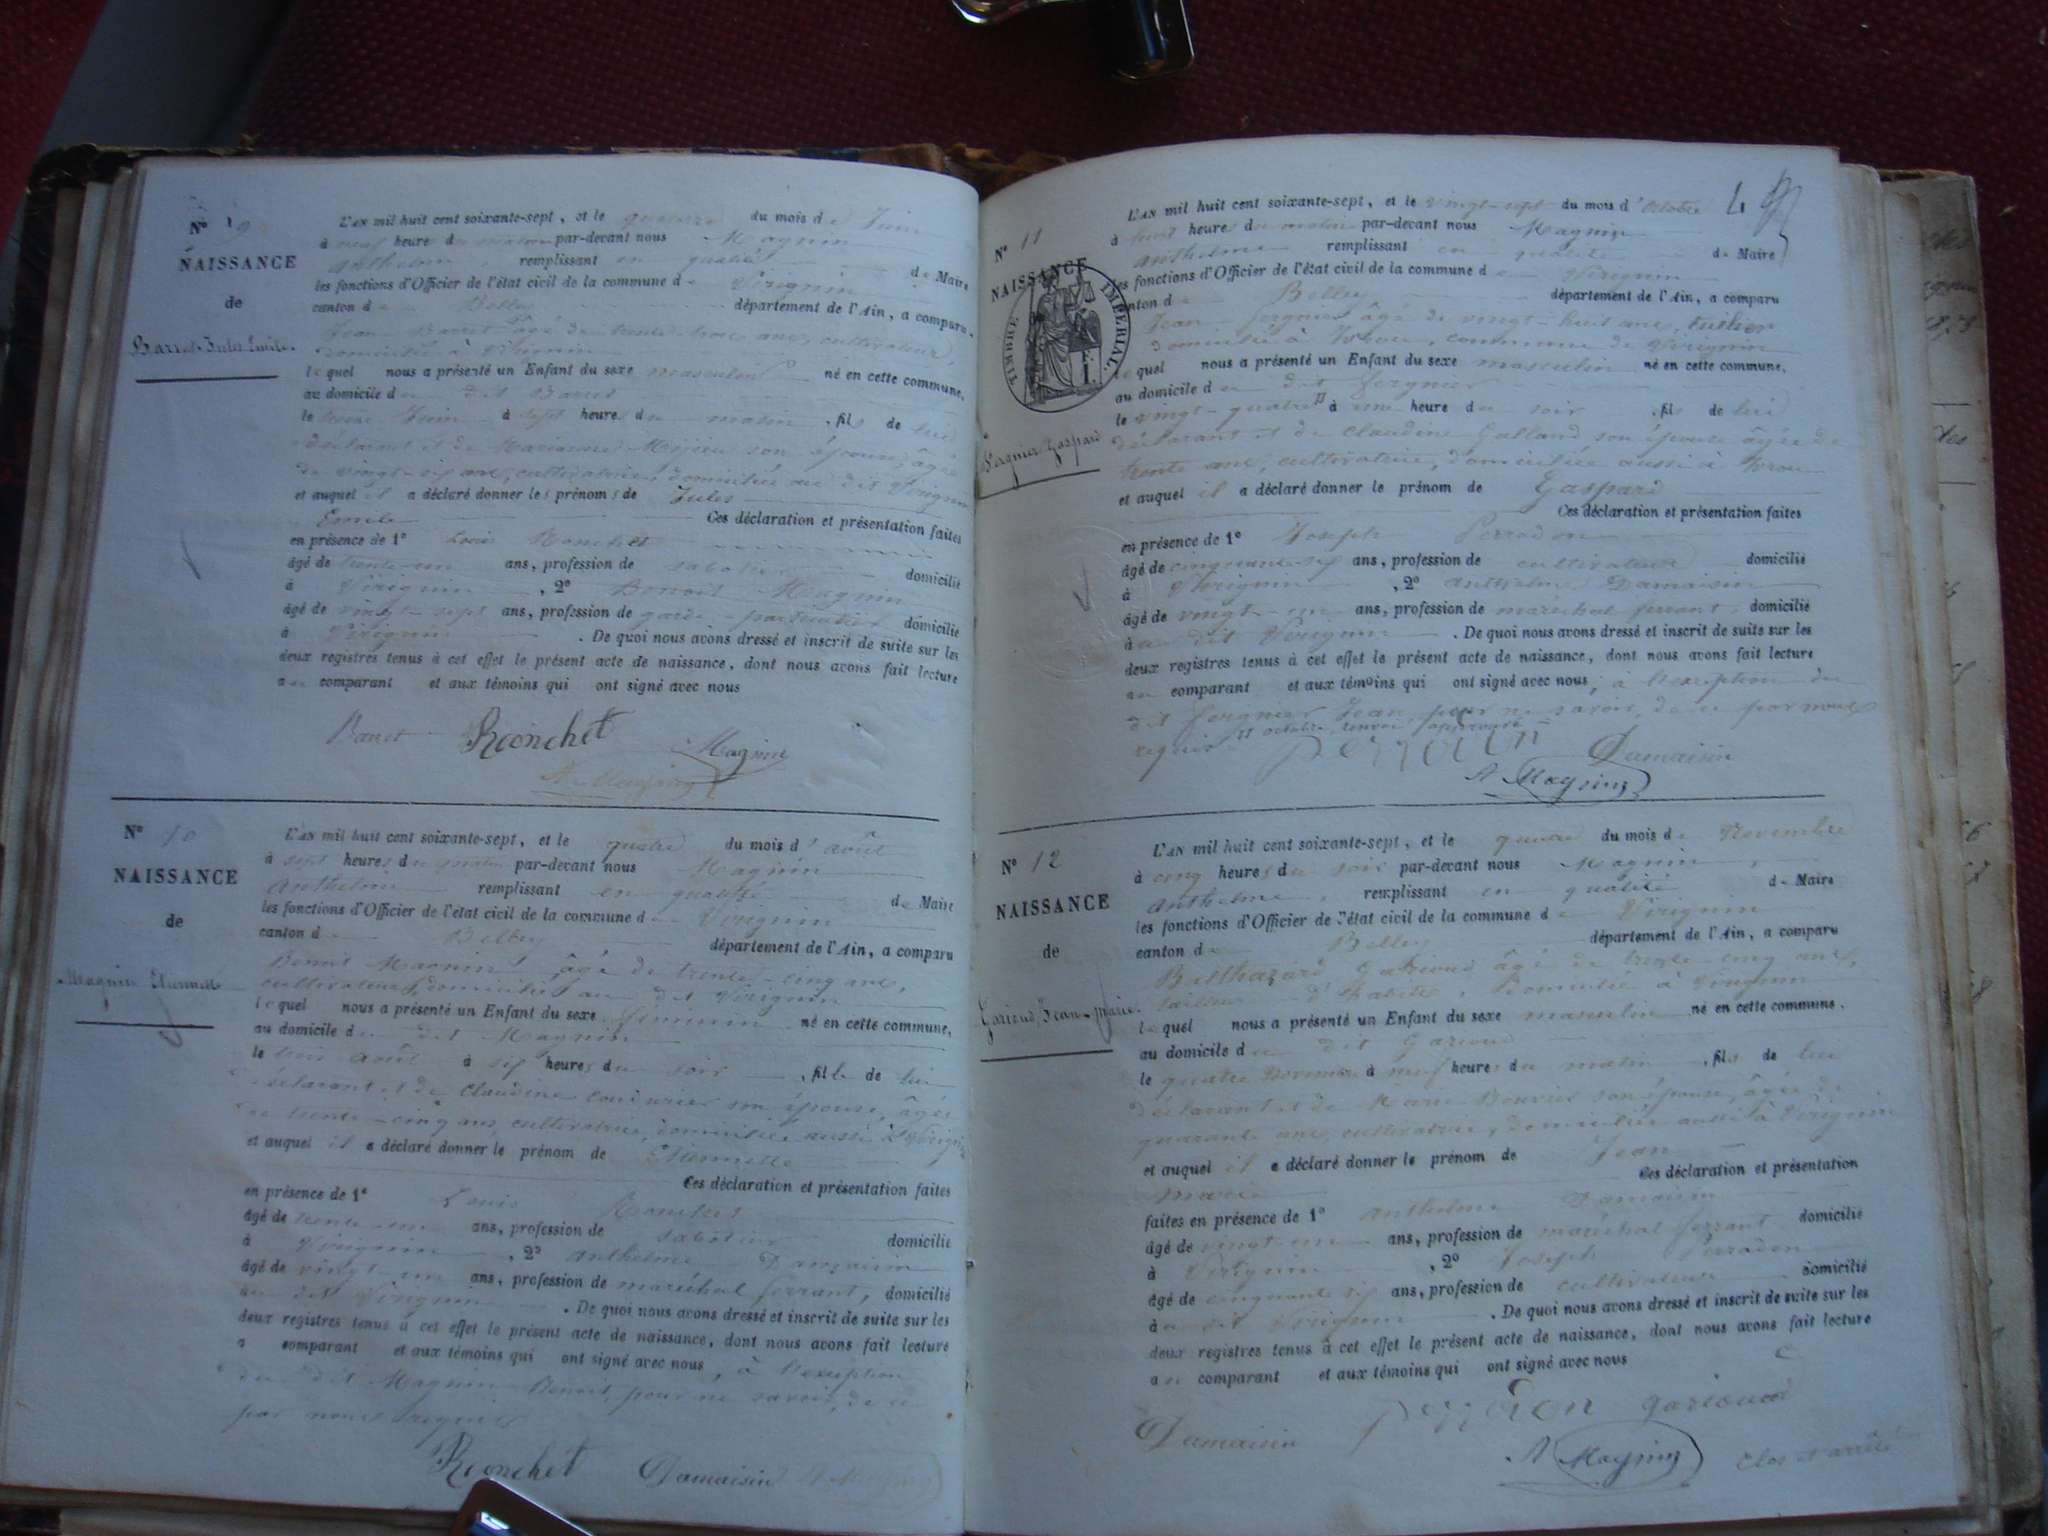 N° 9
NAISSANCE
de
Barret Jules Emile.
L'AN mil huit cent soixante-sept, et le quatorze du mois de Juin
à neuf heure du matin par-devant nous Magnin
Anthelme, remplissant en qualité de Maire
les fonctions d'Officier de l'état civil de la commune de Virignin
canton de Belley département de l'Ain, a comparu
Jean Barret âgé de trente trois ans, cultivateur,
domicilié à Virignin
lequel nous a présenté un Enfant du sexe masculin né en cette commune,
au domicile du dit Barret
le treize Juin à sept heure du matin, fils de lui
déclarant et de Marianne son épouse, âgée
de vingt-six ans, cultivatrice, domiciliée au dit Virignin
et auquel il a déclaré donner les prénoms de Jules
Emile Ces déclaration et présentation faites
en présence de 1° Louis Ronchet
âgé de trente-un ans, profession de sabotier domicilié
à Virignin, 2° Benoit Magnin
âgé de vingt-sept ans, profession de garde-particulier domicilié
à Virignin. De quoi nous avons dressé et inscrit de suite sur les
deux registres tenus à cet effet le présent acte de naissance, dont nous avons fait lecture
au comparant et aux témoins qui ont signé avec nous
Barret Ronchet Magnin
A Magnin
N° 10
NAISSANCE
de
Magnin Etiennette
L'AN mil huit cent soixante-sept, et le quatre du mois d'août
à sept heures du matin par-devant nous Magnin
Anthelme remplissant en qualité de Maire
les fonctions d'Officier de l'état civil de la commune de Virignin
canton de Belley département de l'Ain, a comparu
Benoit Magnin, âgé de trente-cinq ans,
cultivateur, domicilié au dit Virignin
lequel nous a présenté un Enfant du sexe féminin né en cette commune,
au domicile du dit Magnin
le trois août à six heures du soir, fille de lui
déclarant et de Claudine Couturier son épouse, âgée
de trente-cinq ans, cultivatrice, domiciliée aussi à Virignin
et auquel il a déclaré donner le prénom de Etiennette
Ces déclaration et présentation faites
en présence de 1° Louis Ronchet
âgé de trente-un ans, profession de sabotier domicilié
à Virignin, 2° Anthelme Damaisin
âgé de vingt-un ans, profession de maréchal ferrant, domicilié
au dit Virignin. De quoi nous avons dressé et inscrit de suite sur les
deux registres tenus à cet effet le présent acte de naissance, dont nous avons fait lecture
a comparant et aux témoins qui ont signé avec nous, à l'exception
du dit Magnin Benoit, pour ne savoir, de ce
par nous requis
Ronchet Damaisin A Magnin
4
N° 11
NAISSANCE
TIMBRE IMPERIAL
Forgnier Gaspard
L'AN mil huit cent soixante-sept, et le vingt-sept du mois d'Octobre
à huit heures du matin par-devant nous Magnin
Anthelme remplissant en qualité de Maire
les fonctions d'Officier de l'état civil de la commune de Virignin
canton de Belley département de l'Ain, a comparu
Jean Forgnier âgé de vingt-huit ans, tuilier
domicilié à commune de Virignin
lequel nous a présenté un Enfant du sexe masculin né en cette commune,
au domicile du dit Forgnier
le vingt-quatre à une heure du soir, fils de lui
déclarant et de Claudine Galland son épouse âgée de
trente ans, cultivatrice, domiciliée aussi à
et auquel il a déclaré donner le prénom de Gaspard
Ces déclaration et présentation faites
en présence de 1° Joseph Perradon
âgé de cinquante-six ans, profession de cultivateur domicilié
à Virignin, 2° Anthelme Damaisin
âgé de vingt-un ans, profession de maréchal ferrant, domicilié
à au dit Virignin. De quoi nous avons dressé et inscrit de suite sur les
deux registres tenus à cet effet le présent acte de naissance, dont nous avons fait lecture
au comparant et aux témoins qui ont signé avec nous, à l'exception du
dit Forgnier Jean, pour ne savoir, de ce par nous
requis octobre, renvoi approuvé
Damaisin
A Magnin
N° 12
NAISSANCE
de
Garioud Jean-Marie.
L'AN mil huit cent soixante-sept, et le quatre du mois de Novembre
à cinq heures du soir par-devant nous Magnin
Anthelme, remplissant en qualité de Maire
les fonctions d'Officier de l'état civil de la commune de Virignin
canton de Belley département de l'Ain, a comparu
Balthazard Garioud âgé de trente cinq ans,
tailleur d'habits, domicilié à Virignin
lequel nous a présenté un Enfant du sexe masculin né en cette commune,
au domicile du dit Garioud
le quatre Novembre à neuf heures du matin, fils de lui
déclarant et de Marie Bouvier son épouse, âgée de
quarante ans, cultivatrice, domiciliée aussi à Virignin
et auquel il a déclaré donner le prénom de Jean
Marie Ces déclaration et présentation
faites en présence de 1° Anthelme Damaisin
âgé de vingt-un ans, profession de maréchal ferrant domicilié
à Virignin, 2° Joseph Perradon
âgé de cinquante six ans, profession de cultivateur domicilié
à au dit Virignin. De quoi nous avons dressé et inscrit de suite sur les
deux registres tenus à cet effet le présent acte de naissance, dont nous avons fait lecture
au comparant et aux témoins qui ont signé avec nous
Damaisin garioud
A Magnin Clos et arrêté